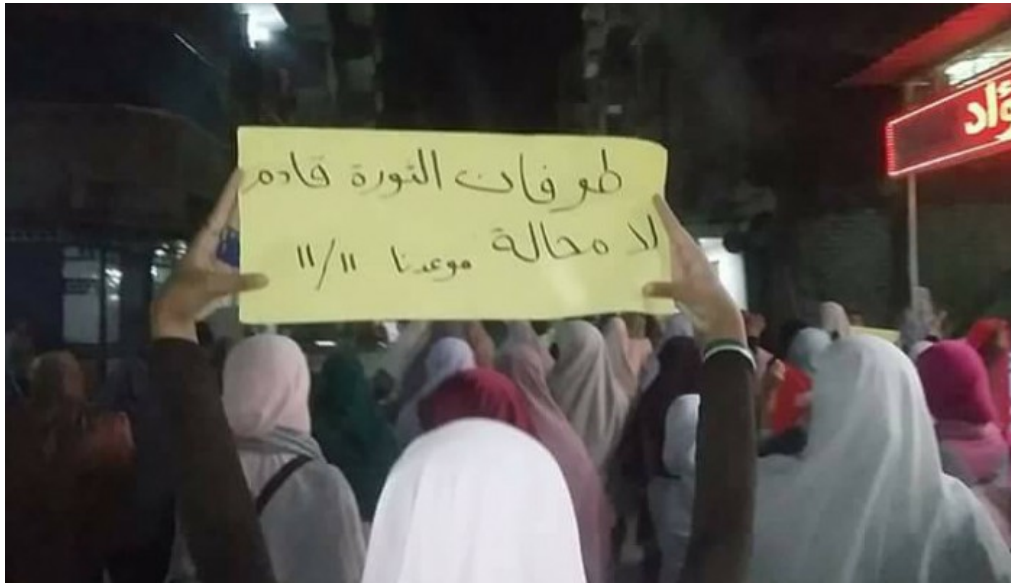 طوفان الثورة قادم
لا محالة موعدنا ١١/١١